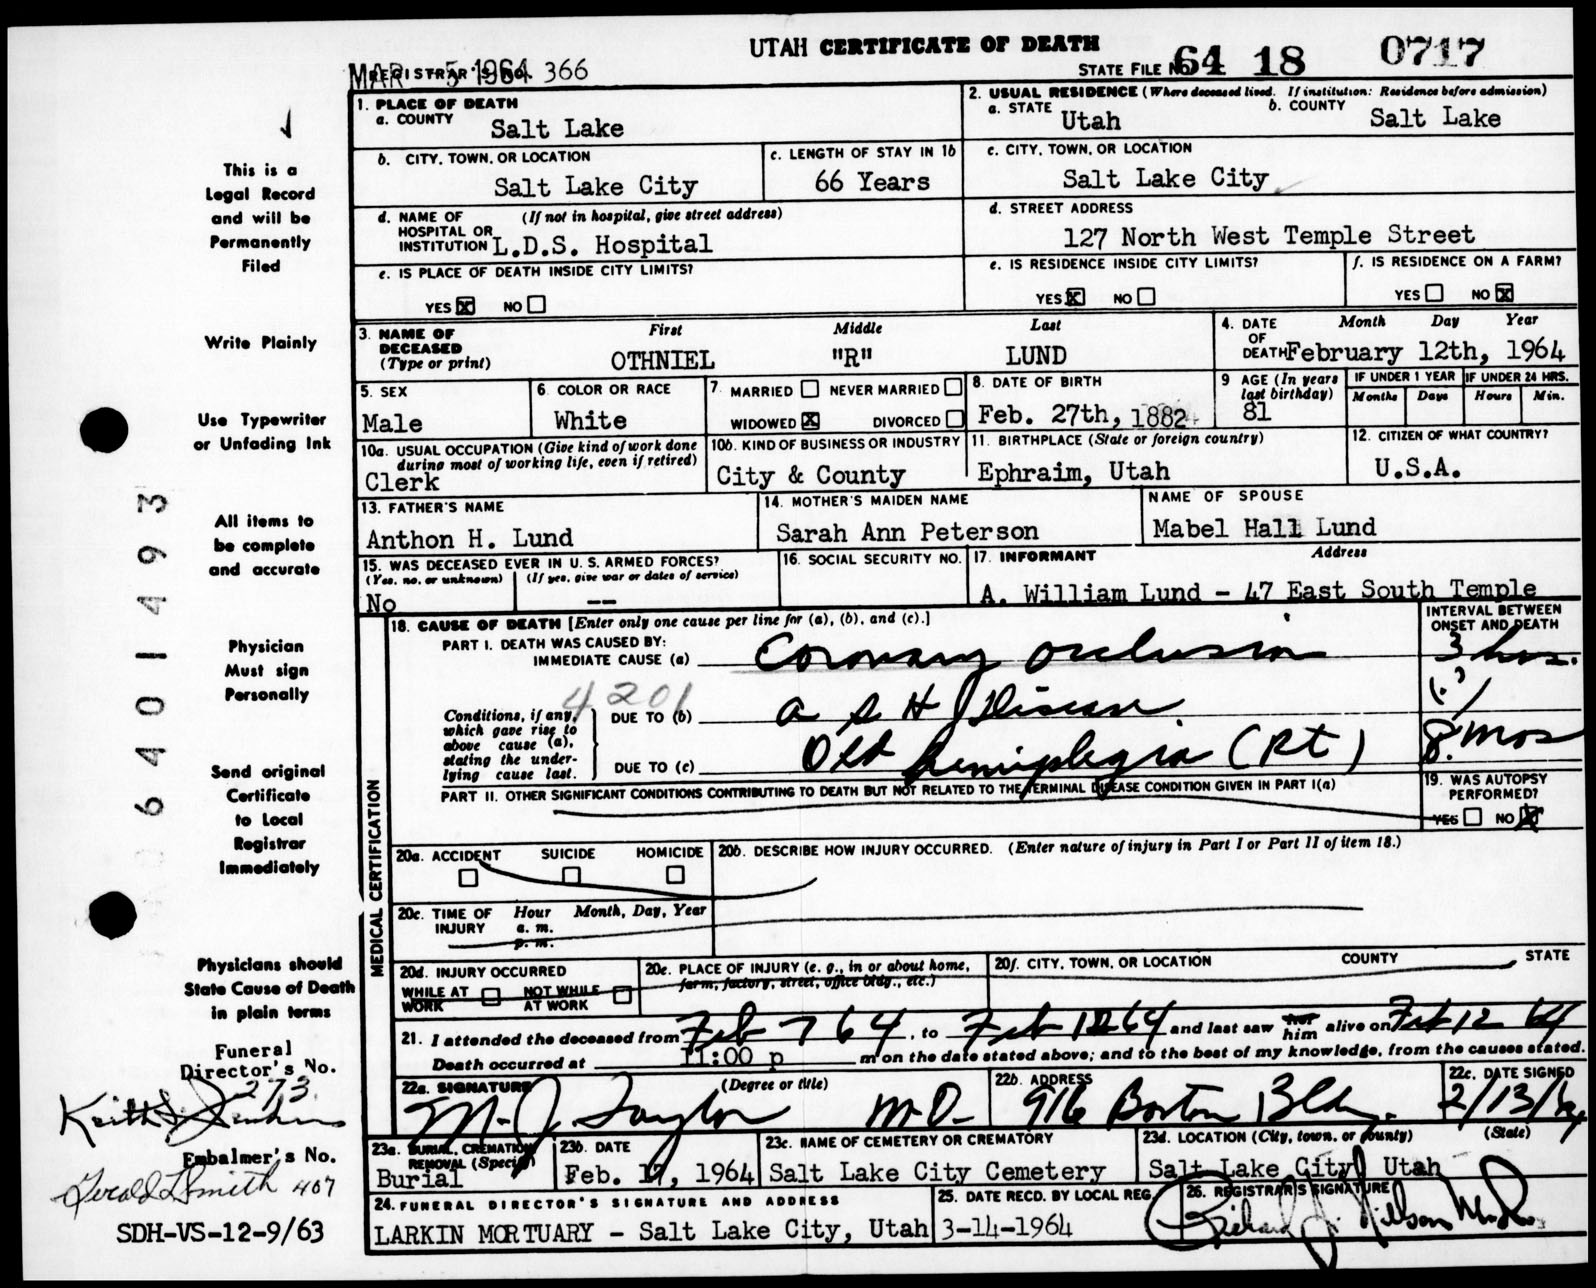 UTAH CERTIFICATE OF DEATH
MAR 5 1964 REGISTRAR'S NO. 366
STATE FILE NO. 64 18 0717
1. PLACE OF DEATH
a. COUNTY Salt Lake
2. USUAL RESIDENCE (Where deceased lived. If institution: Residence before admission)
a. STATE Utah b. COUNTY Salt Lake
b. CITY, TOWN, OR LOCATION Salt Lake City
c. LENGTH OF STAY IN 1b 66 Years
c. CITY, TOWN, OR LOCATION Salt Lake City
d. NAME OF HOSPITAL OR INSTITUTION (If not in hospital, give street address) L.D.S. Hospital
d. STREET ADDRESS 127 North West Temple Street
e. IS PLACE OF DEATH INSIDE CITY LIMITS?
YES X NO
e. IS RESIDENCE INSIDE CITY LIMITS?
YES X NO
f. IS RESIDENCE ON A FARM?
YES NO X
3. NAME OF DECEASED (Type or print) First Middle Last
OTHNIEL "R" LUND
4. DATE OF DEATH Month Day Year
February 12th, 1964
5. SEX Male
6. COLOR OR RACE White
7. MARRIED NEVER MARRIED
WIDOWED X DIVORCED
8. DATE OF BIRTH Feb. 27th, 1882
9 AGE (In years last birthday) 81
IF UNDER 1 YEAR Months Days
IF UNDER 24 HRS. Hours Min.
10a. USUAL OCCUPATION (Give kind of work done during most of working life, even if retired)
Clerk
10b. KIND OF BUSINESS OR INDUSTRY
City & County
11. BIRTHPLACE (State or foreign country)
Ephraim, Utah
12. CITIZEN OF WHAT COUNTRY?
U.S.A.
13. FATHER'S NAME
Anthon H. Lund
14. MOTHER'S MAIDEN NAME
Sarah Ann Peterson
NAME OF SPOUSE
Mabel Hall Lund
15. WAS DECEASED EVER IN U. S. ARMED FORCES?
(Yes, no, or unknown) (If yes, give war or dates of service)
No --
16. SOCIAL SECURITY NO.
17. INFORMANT Address
A. William Lund - 47 East South Temple
MEDICAL CERTIFICATION
18. CAUSE OF DEATH [Enter only one cause per line for (a), (b), and (c).]
INTERVAL BETWEEN ONSET AND DEATH
PART I. DEATH WAS CAUSED BY:
IMMEDIATE CAUSE (a) Coronary Occlusion 3 hrs.
4201
Conditions, if any, which gave rise to above cause (a), stating the underlying cause last.
DUE TO (b) A S H Disease (?)
DUE TO (c) Old hemiplegia (Rt) 8 Mos
PART II. OTHER SIGNIFICANT CONDITIONS CONTRIBUTING TO DEATH BUT NOT RELATED TO THE TERMINAL DISEASE CONDITION GIVEN IN PART I(a)
19. WAS AUTOPSY PERFORMED?
YES NO X
20a. ACCIDENT SUICIDE HOMICIDE
20b. DESCRIBE HOW INJURY OCCURRED. (Enter nature of injury in Part I or Part II of item 18.)
20c. TIME OF INJURY Hour Month, Day, Year
a. m.
p. m.
20d. INJURY OCCURRED
WHILE AT WORK NOT WHILE AT WORK
20e. PLACE OF INJURY (e. g., in or about home, farm, factory, street, office bldg., etc.)
20f. CITY, TOWN, OR LOCATION COUNTY STATE
21. I attended the deceased from Feb 7 64, to Feb 12 64 and last saw her him alive on Feb 12 64
Death occurred at 11:00 p m on the date stated above; and to the best of my knowledge, from the causes stated.
22a. SIGNATURE (Degree or title)
M. J. Taylor M.D.
22b. ADDRESS
916 Boston Bldg.
22c. DATE SIGNED
2/13/64
23a. BURIAL, CREMATION REMOVAL (Specify)
Burial
23b. DATE
Feb. 17, 1964
23c. NAME OF CEMETERY OR CREMATORY
Salt Lake City Cemetery
23d. LOCATION (City, town, or county) (State)
Salt Lake City Utah
24. FUNERAL DIRECTOR'S SIGNATURE AND ADDRESS
LARKIN MORTUARY - Salt Lake City, Utah
25. DATE RECD. BY LOCAL REG.
3-14-1964
26. REGISTRAR'S SIGNATURE
Richard J. Nilson
This is a
Legal Record
and will be
Permanently
Filed
Write Plainly
Use Typewriter
or Unfading Ink
All items to
be complete
and accurate
Physician
Must sign
Personally
Send original
Certificate
to Local
Registrar
Immediately
Physicians should
State Cause of Death
in plain terms
Funeral
Director's No.
273
Embalmer's No.
Gerald L Smith 407
SDH-VS-12-9/63
6401493